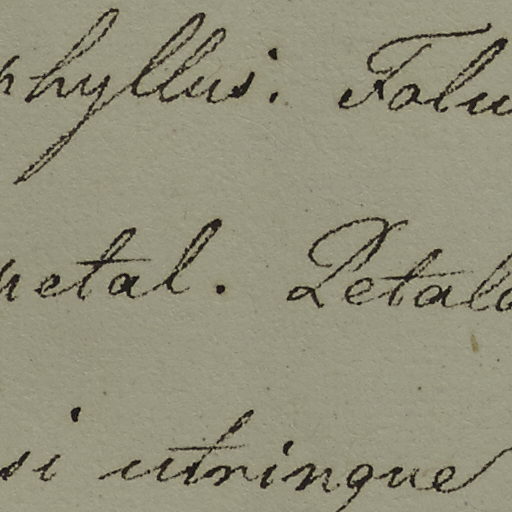 phyllus. Folu
petal. Petala
si utrinque